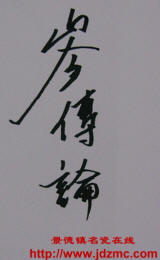 岑傅論
景德镇名瓷在线
http://www.jdzmc.com